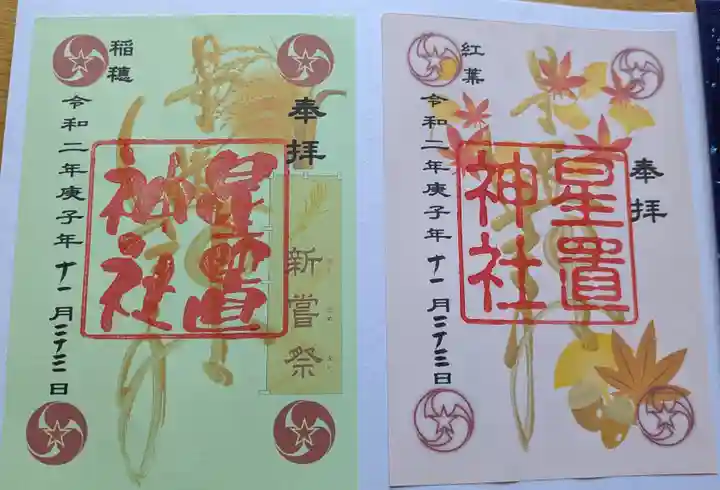 奉拝
星置
神社
新嘗祭
稲穂
令和二年庚子年十一月二十三日
奉拝
星置
神社
紅葉
令和二年庚子年十一月二十三日